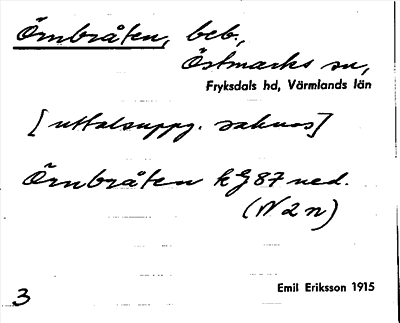 Örnbråten, beb.,
Östmarks sn,
Fryksdals hd, Värmlands län
[uttalsuppg. saknas]
Örnbråten kg 87 ned.
(N 2 n)
3
Emil Eriksson 1915